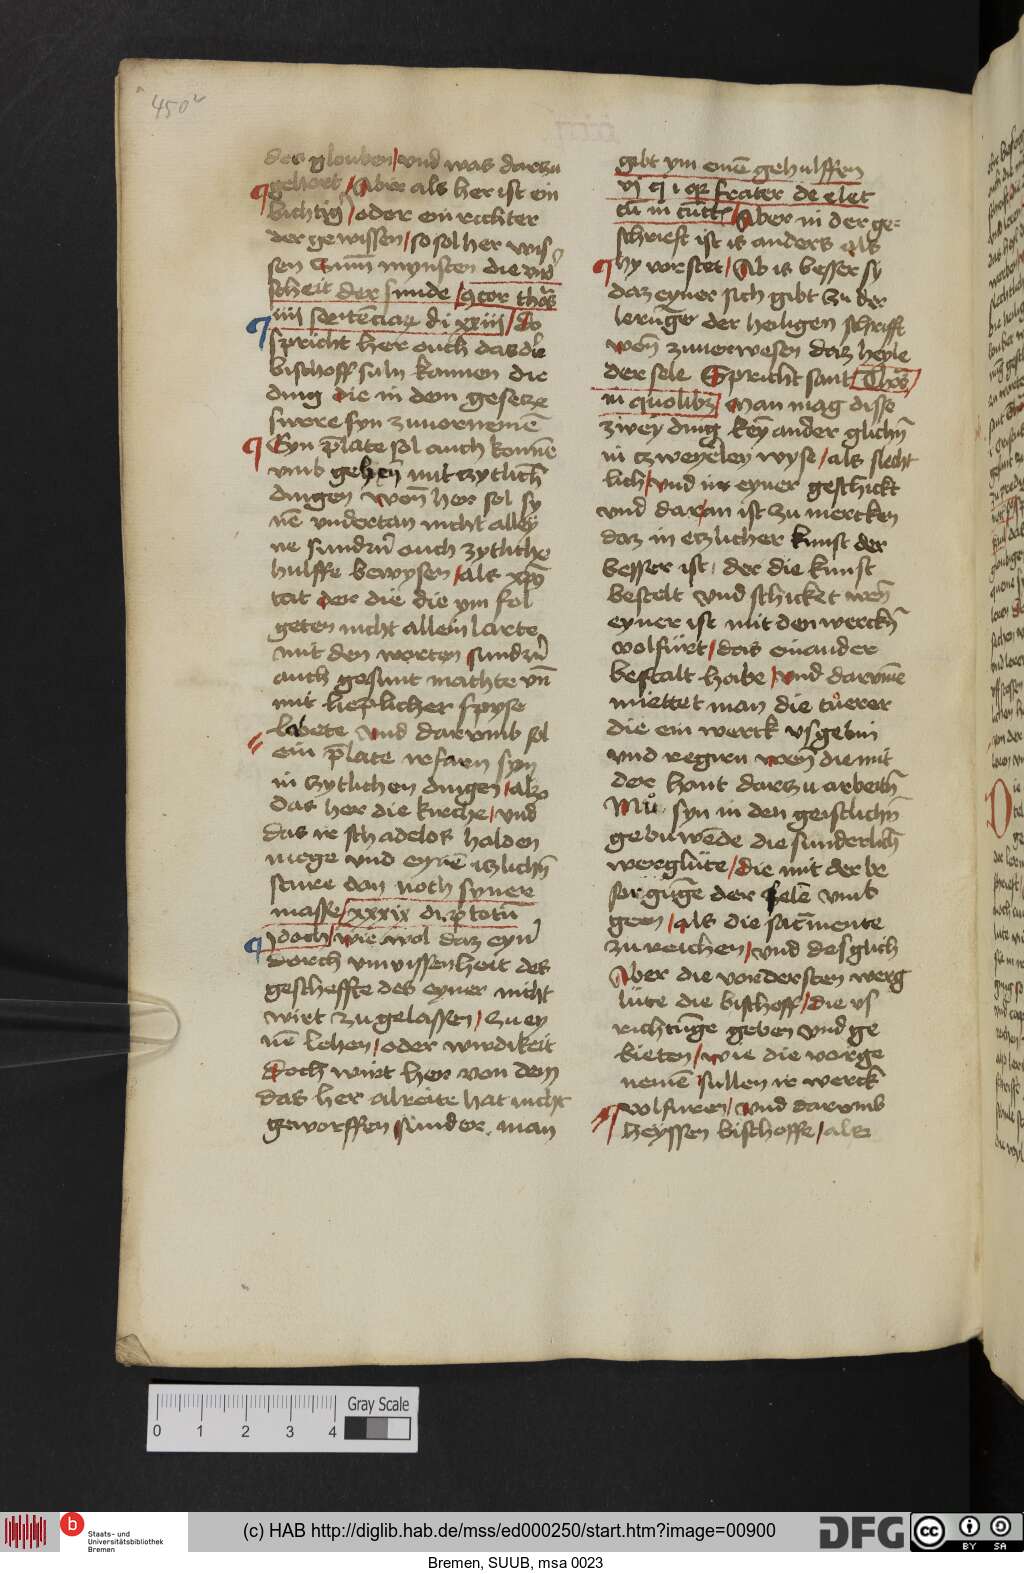 450v
des glouben / und was darzu
gehort / Aber als her ist ein
bichtig̉ / oder ein richter
der gewissen / so sol her wis
sen zum mynsten die und̓
scheit der sunde / scor thoś
iiij sentēciaꝝ di xxiiij / do
spricht her ouch das die
bischoff suln kannen die
ding die in dem gesetze
swere syn zuuornemē
Eyn p̄late sol auch konnē
umb gehen̄ mit czytlich̄
dingen wen̄ her sol sy
nē undertan nicht alley
ne sundrn̉ ouch zytliche
hulffe bewysen / als xp̄s
tat der die die ym fol
geten nicht allein larte
mit den worten sundrn̉
auch gesunt machte vn̄
mit lieplicher spyse
labete und darumb sol
ein p̄late irfarn syn
in zytlichen dingen / als
das her die kirche / und
das ir schadelos halden
moge und eynē iczlichn̄
sture don noch syner
masse / xxxix di p totū
Jdoch / wie wol daz eyn̉
dorch unwissenheit des
gescheffte des eyner nicht
wirt zugelassen / zu ey
nē lehen / oder wirdikeit
Doch wirt her von dem
das her alreite hat nicht
geworffen sunder man
gibt ym einē gehulffen
vj q i qꝛ frater de elec
tū in cūct̄ / Aber in der ge=
schrieft ist is anders als
hy vorstet / Ab is besser sy
daz eyner sich gibt zu der
lerūge der heiligen schrifft
wen̄ zuuorwesen daz heyle
der sele Spricht sant Thoś
in quolibꝫ / man mag disse
zwey ding key̅ ander glichn̄
in czweyerley wyse / als slecht
lich / und in eyner geschickt
und daran ist zu mercken
daz in etzlicher kunst der
besser ist / der die kunst
bestelt und schicket wen̄
eyner ist mit den werckn̄
volfürt / das einander
bestalt habe / und darumē
miettet man die tůerer
die ein werck usgebin
und regirn wen̄ die mit
der hant darzu arbeitn̄
Nů syn in den geistlichn̄
gebuwēde die sunderlich̄
werglute / die mit der be
sorgūge der selē umb
geen / als die sacͬmente
zu reichen / und desglich
Aber die vordersten werg
lüte die bischoff / die us
richtūge geben und ge
bieten / wie die vorge
nemē sullen ir werck
volfuren / und darumb
heyssen bischoffe / als
0 1 2 3 4
Gray Scale
Staats- und
Universitätsbibliothek
Bremen
(c) HAB http://diglib.hab.de/mss/ed000250/start.htm?image=00900
DFG
cc BY SA
Bremen, SUUB, msa 0023